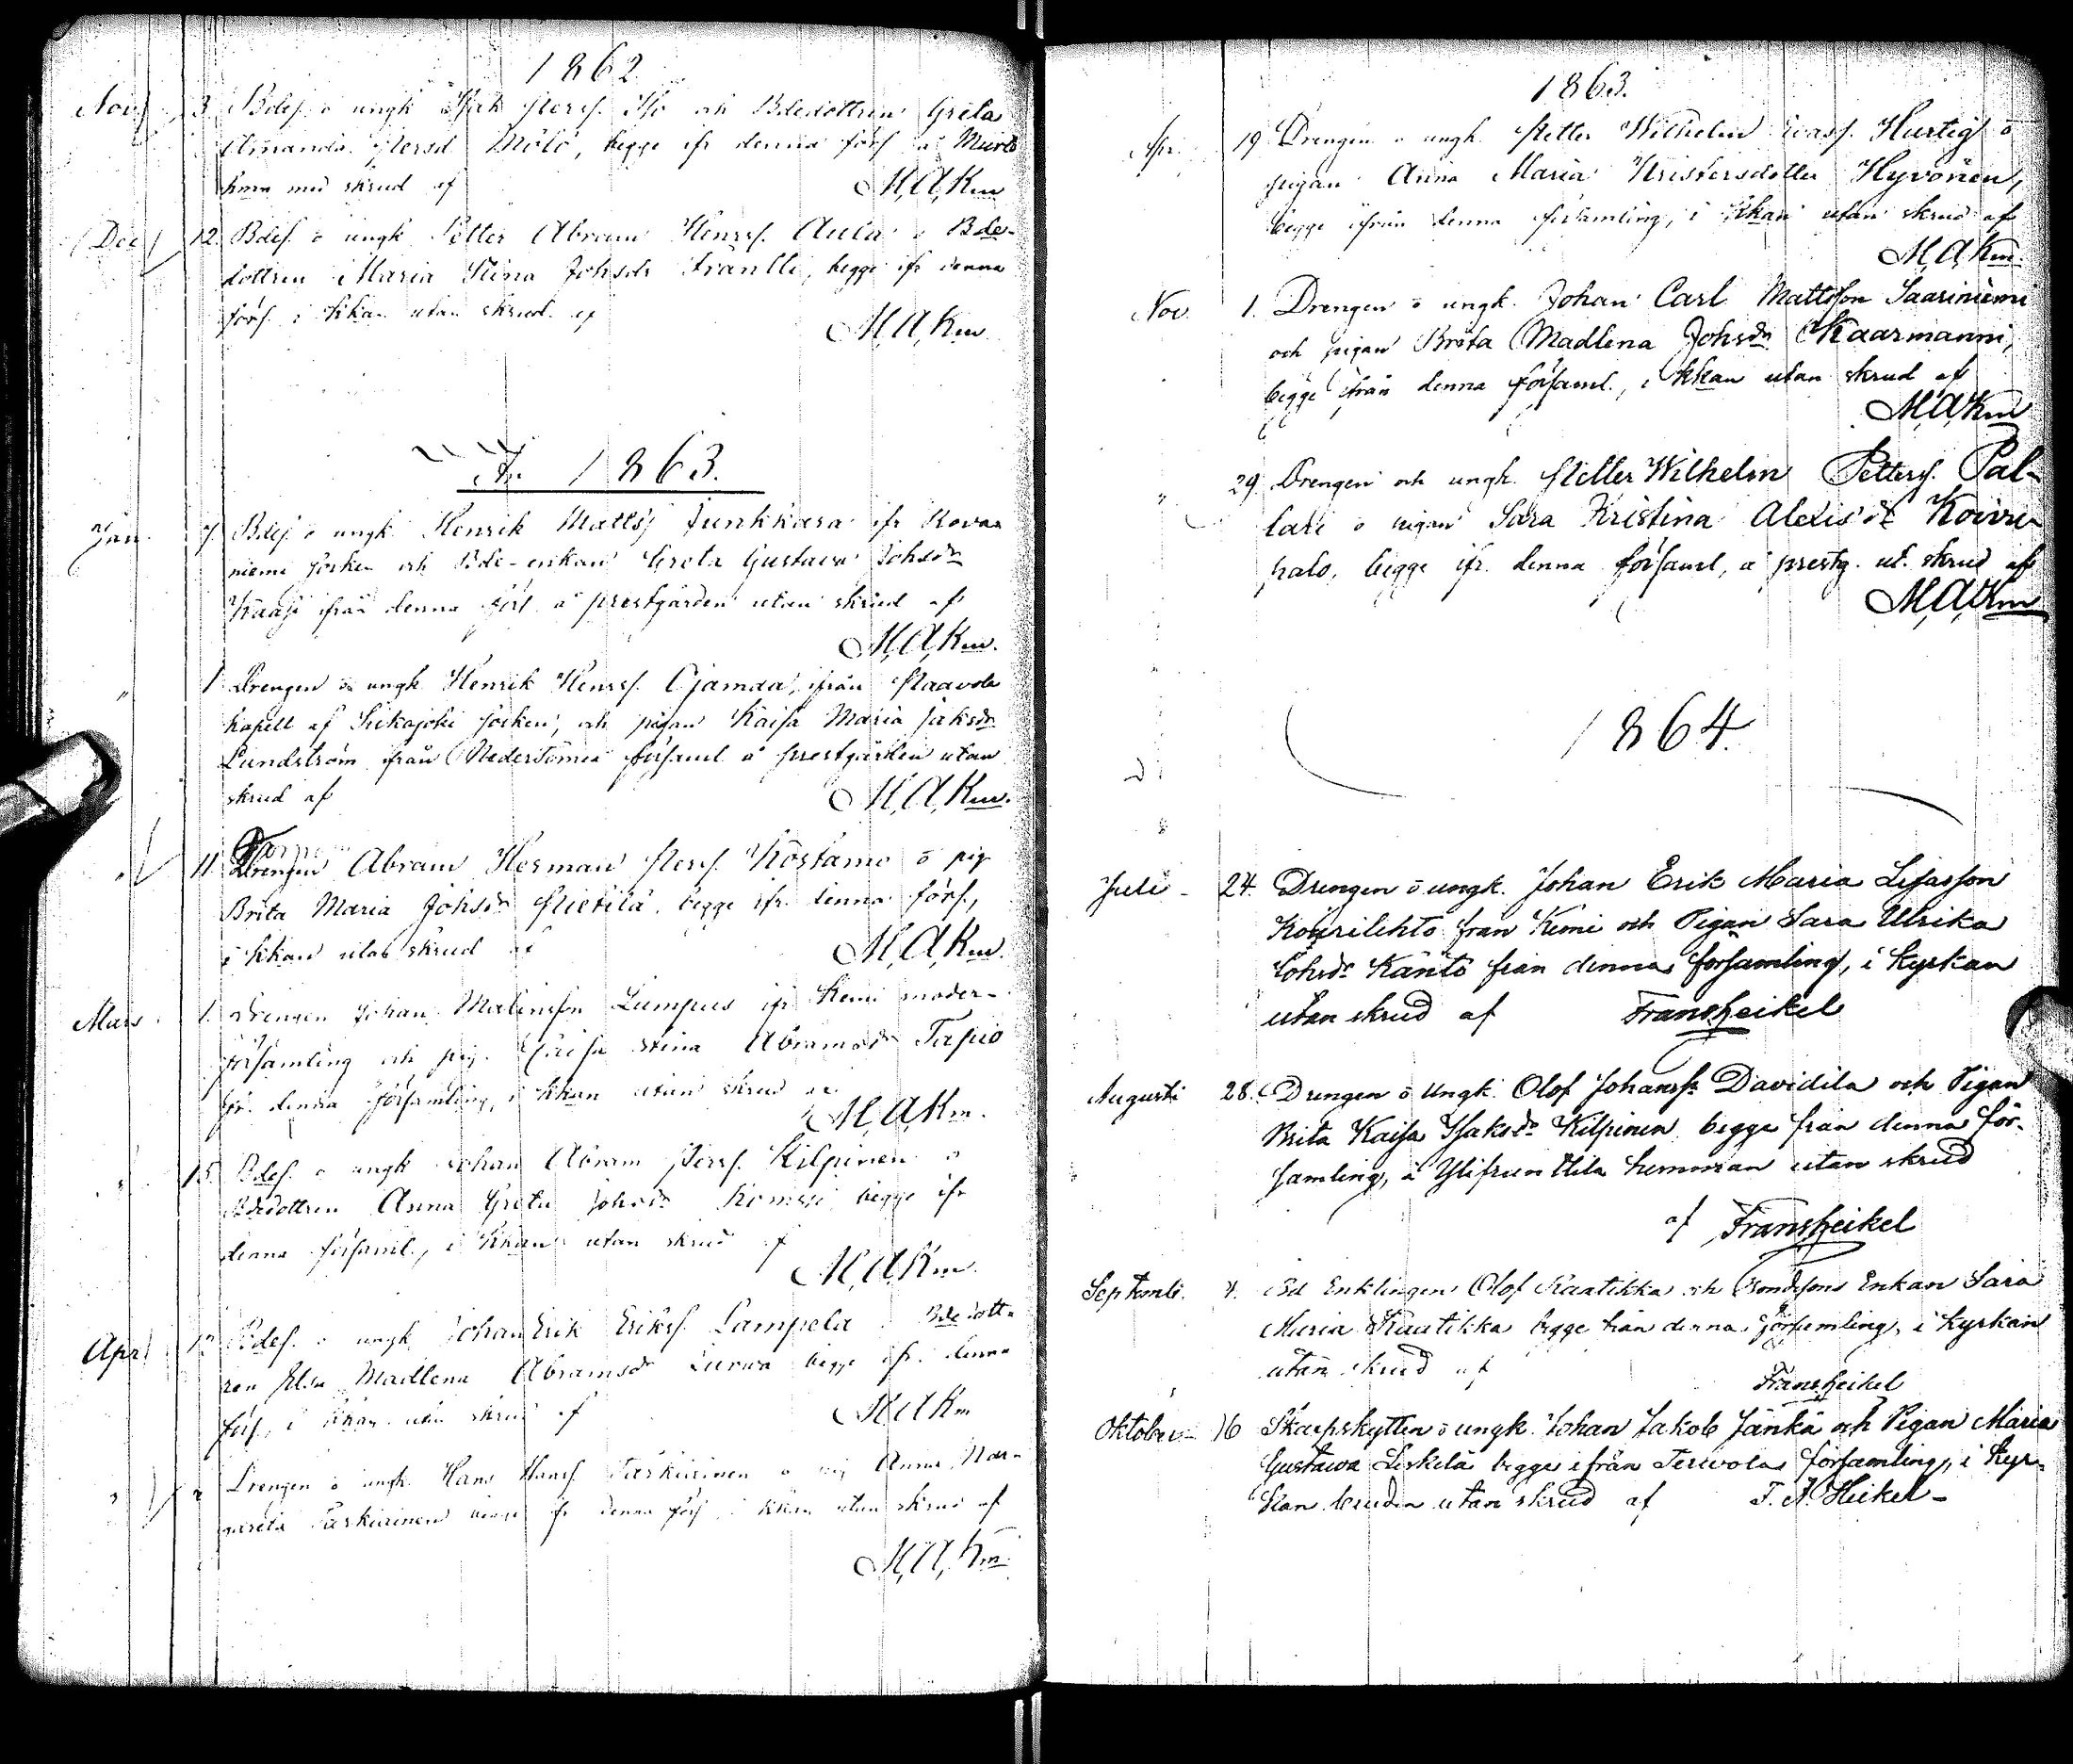 1862
Nov. 3. Bdes. o ungk. Isak Perss. Iso och Bdedottren Greta
Amanda Persd. Mölö, begge ifr denna förs å Murto
hmn med skrud af M.A.Km
Dec. 12. Bdes. o ungk. Petter Abram Henrss. Aula o Bde-
dottren Maria Stina Johsdr Frantti, begge ifr denna
förs. i Kkan utan skrud af
M.A.Km
År 1863.
Jan. 7 Bdes. o ungk. Henrik Matts. Junkkara ifr Rova-
niemi socken och Bde-enkan Greta Gustava Johsdr
från denna förs. å prestgården utan skrud af
M.A.Km.
" 1 Drengen o ungk. Henrik Henrss. Ojamaa, ifrån Paavola
kapell af Siikajoki socken, och pigan Kaisa Maria Jaksdr
Lundström från Nedertorneå församl. å prestgården utan
skrud af M.A.Km.
" 11. Drengen Abram Herman Perss. Köstamo o pig.
Brita Maria Johsdr Pietilä, begge ifr. denna förs.,
i Kkan utan skrud af M.A.Km.
Mars 1. Drengen Johan Malinson Lumpus ifr Kemi moder-
församling och pig. Caisa Stina Abramsdr Tapio
ifr. denna församling, i Kkan utan skrud af
M.A.Km.
" 15. Bdes. o ungk. Johan Abram Perss. Kilpinen o
Bdedottren Anna Greta Johsdr Komssi begge ifr
denna församl., i Kkan utan skrud af
M.A.Km.
Apr. 12 Bdes. o ungk. Johan Erik Erikss. Lampela o Bdedott-
ren Elsa Madlena Abramsdr begge ifr. denna
förs., i Kkan utan skrud af M.A.Km
" Drengen o ungk. Hans Hanss. Tarkiainen o pig. Anna Mar-
gareta Tarkiainen begge ifr denna förs. i kkan utan skrud af
M.A.Km.
1863.
Apr. 19 Drengen o ungk. Petter Wilhelm Hurtig o
pigan Anna Maria Kristersdotter Hyvönen,
begge ifrån denna församling, i Kkan utan skrud af
M.A.Km.
Nov. 1. Drengen o ungk. Johan Carl Mattsson Saariniemi
och pigan Brita Madlena Johsdr Kaarmanni,
begge ifrån denna församl., i kkan utan skrud af
M.A.Km
" 29. Drengen och ungk. Petter Wilhelm Petterss. Pal-
lari o pigan Sara Kristina Alexisdr Koivu-
palo, begge ifr. denna församl, å prestg. ut. skrud af
M.A.Km
1864.
Juli - 24. Drengen o ungk. Johan Erik Maria Lisasson
Kourilehto från Kemi och Pigan Sara Ulrika
Johsdr Käntö från denna församling, i kyrkan
utan skrud af Frans Heikel
Augusti 28. Drengen o Ungk. Olof Johanss. Davidila och Pigan
Brita Kaisa Isaksdr Kilpinen begge från denna för-
samling, å Ylifrunttila hemman utan skrud
af Frans Heikel
Septemb. 4. Enklingen Olof Raatikka och Bondesons Enkan Sara
Maria Raatikka begge från denna församling, i kyrkan
utan skrud af
Frans Heikel
Oktober - 16 Skarpskytten o ungk. Johan Jakob Jänkä och Pigan Maria
Gustawa Leskelä begge ifrån Terwola församling, i kyr-
kan bruden utan skrud af F. A. Heikel -